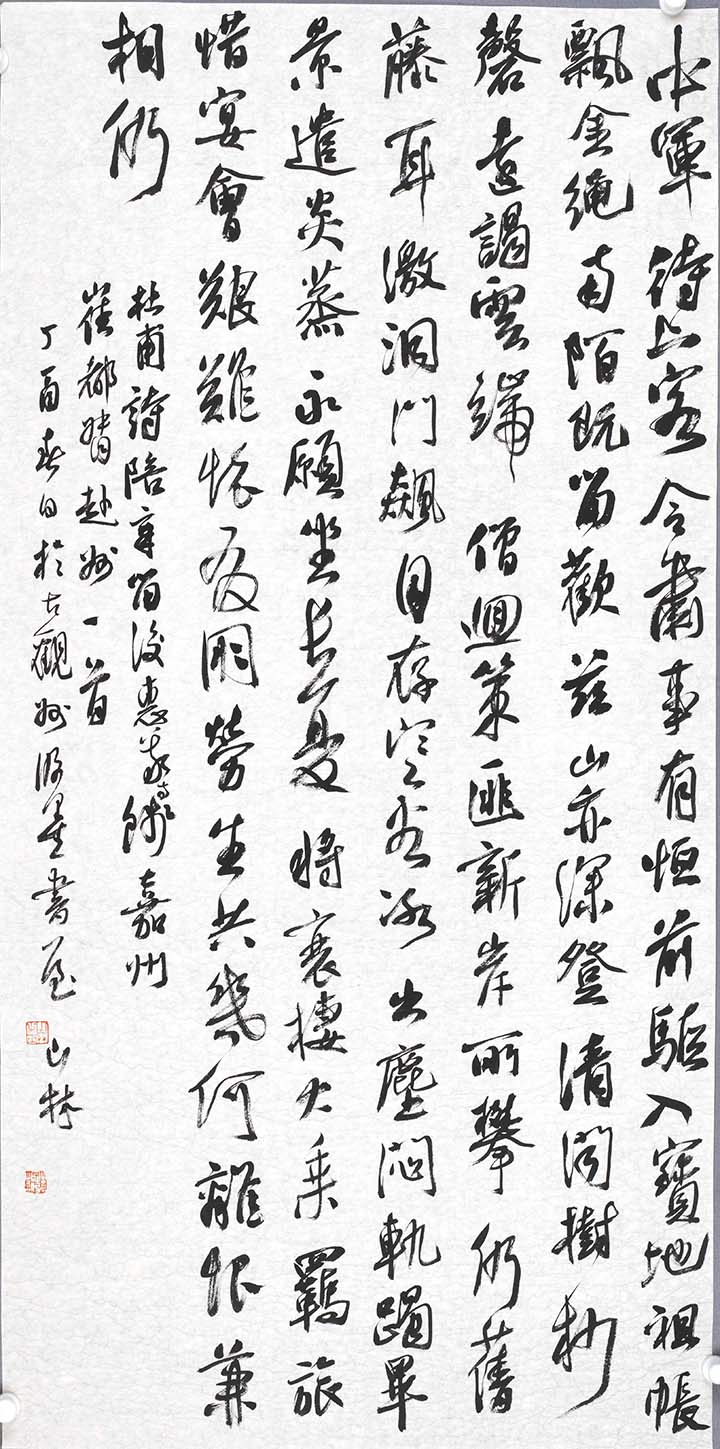 中軍待上客令肅事有恒前驅入寶地祖帳
飄金繩南陌既留歡茲山亦深登清聞樹杪
磬遠謁雲端僧迴策匪新岸所攀仍舊
藤耳激洞門飆目存寒谷冰出塵悶軌躅畢
景遺炎蒸永願坐長夏將衰棲大乘羈旅
惜宴會艱難怀友朋勞生共幾何離恨兼
相仍
杜甫詩陪章留後惠義寺餞嘉州
崔都督赴州一首
丁酉春日於古觀州墨書屋 山林